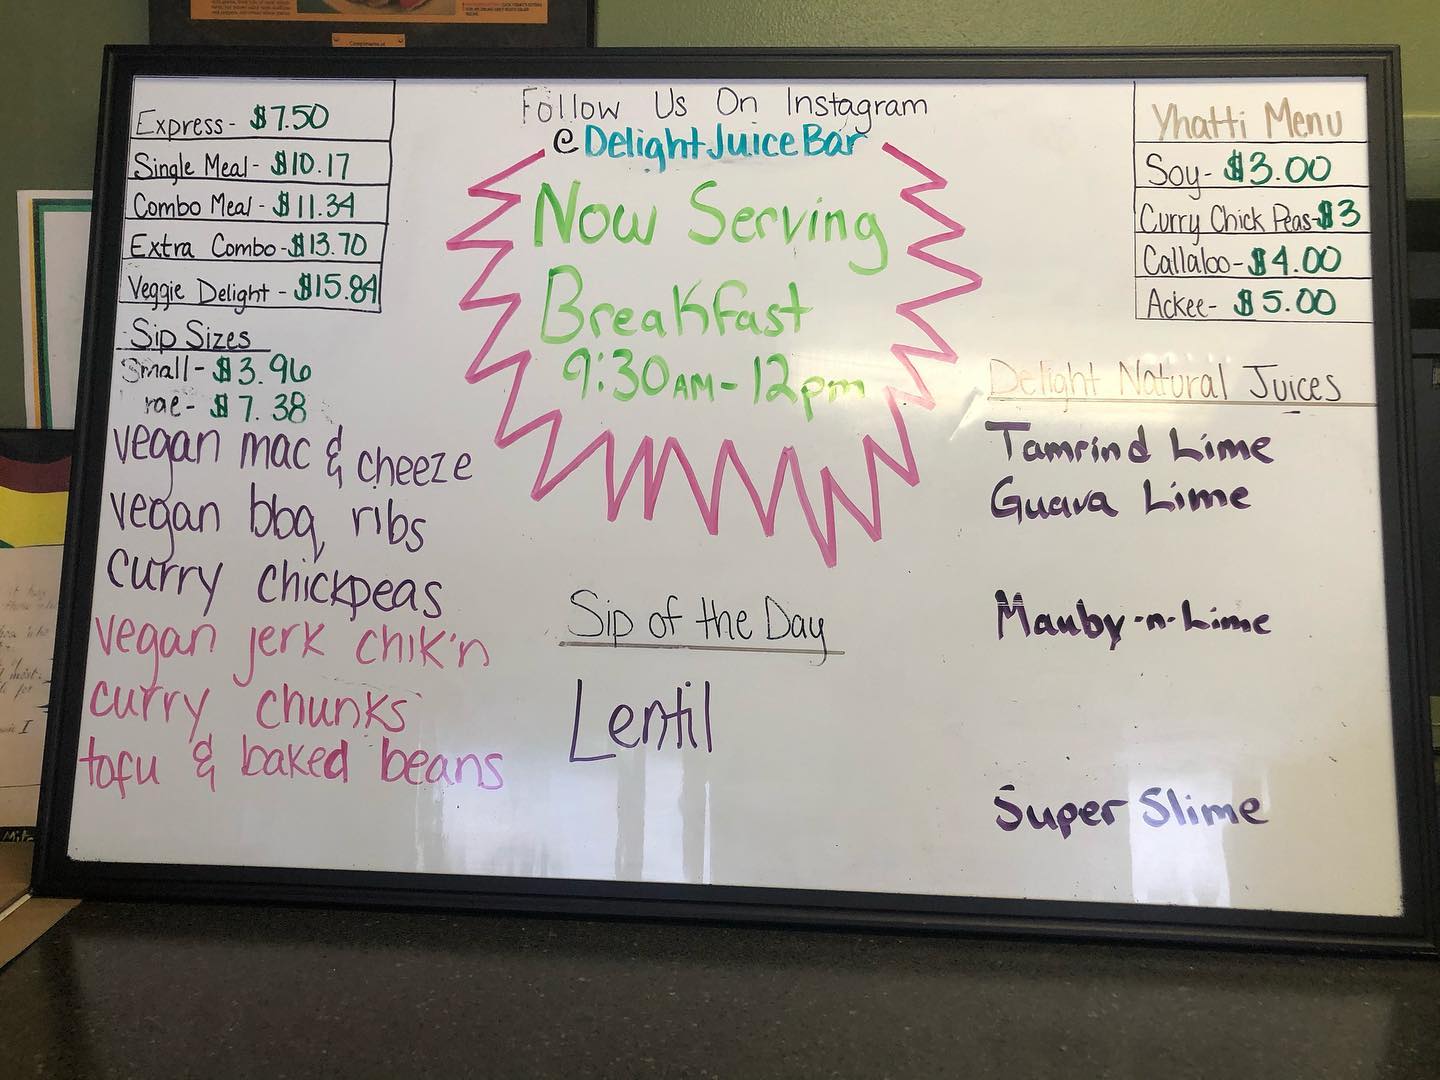 Express- $7.50
Single Meal- $10.17
Combo Meal- $11.34
Extra Combo-$13.70
Veggie Delight - $15.84
Sip Sizes
Small- $3.96
rae- $7.38
vegan mac & cheeze
vegan bbq ribs
curry chickpeas
vegan jerk chik'n
curry chunks
tofu & baked beans
Follow Us On Instagram
@DelightJuiceBar
Now Serving
Breakfast
9:30AM-12pm
Sip of the Day
Lentil
Yhatti Menu
Soy- $3.00
Curry Chick Peas-$3
Callaloo-$4.00
Ackee- $5.00
Delight Natural Juices
Tamrind Lime
Guava Lime
Mauby-n-Lime
Super Slime